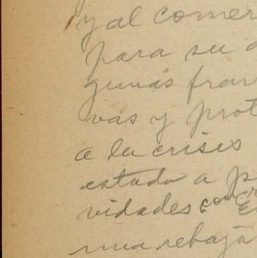 y al comer
para su a
gunas fran
vas y prot
a la crisis
estado a p
vidades con
una rebaja